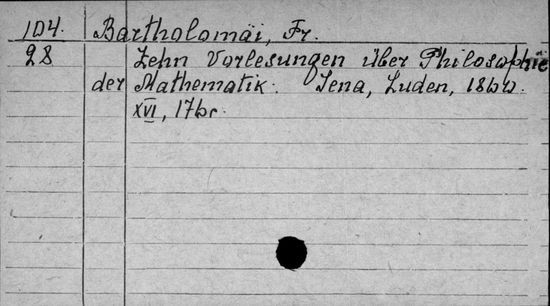 104. Bartholomäi, Fr.
28 Zehn Vorlesungen über Philosophie
der Mathematik. Jena, Luden, 1860.
XVI, 176 c.